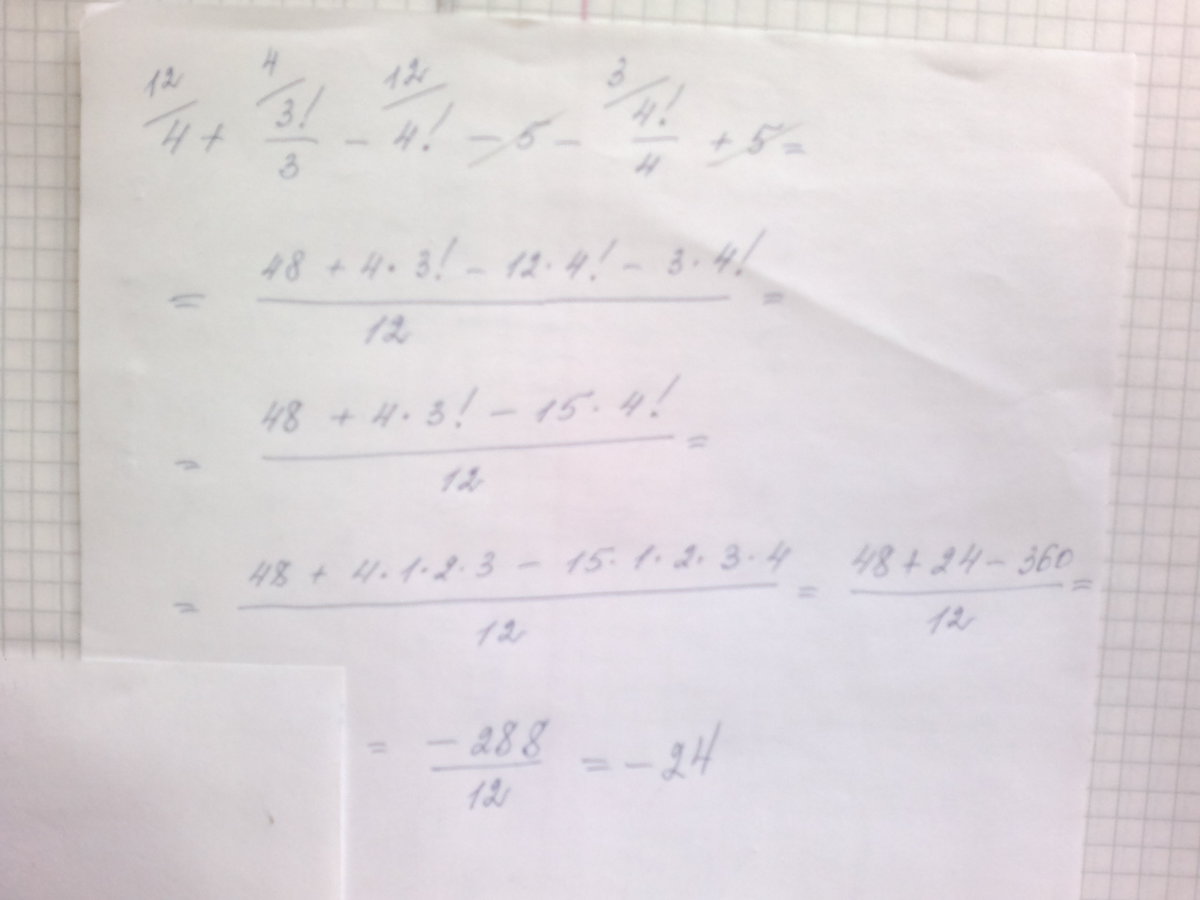 12/4 + 4/ 3!/3 - 12/4! - 5 - 3/ 4!/4 + 5 =
= 48 + 4 · 3! - 12 · 4! - 3 · 4! / 12 =
= 48 + 4 · 3! - 15 · 4! / 12 =
= 48 + 4 · 1 · 2 · 3 - 15 · 1 · 2 · 3 · 4 / 12 = 48 + 24 - 360 / 12 =
= -288 / 12 = -24